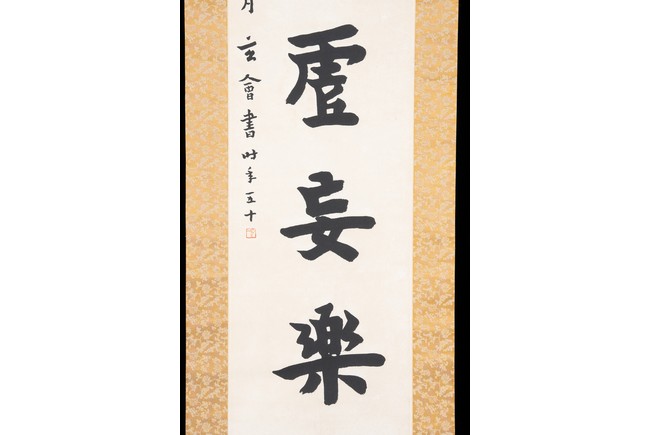 虛妄樂
月玄會書时年五十